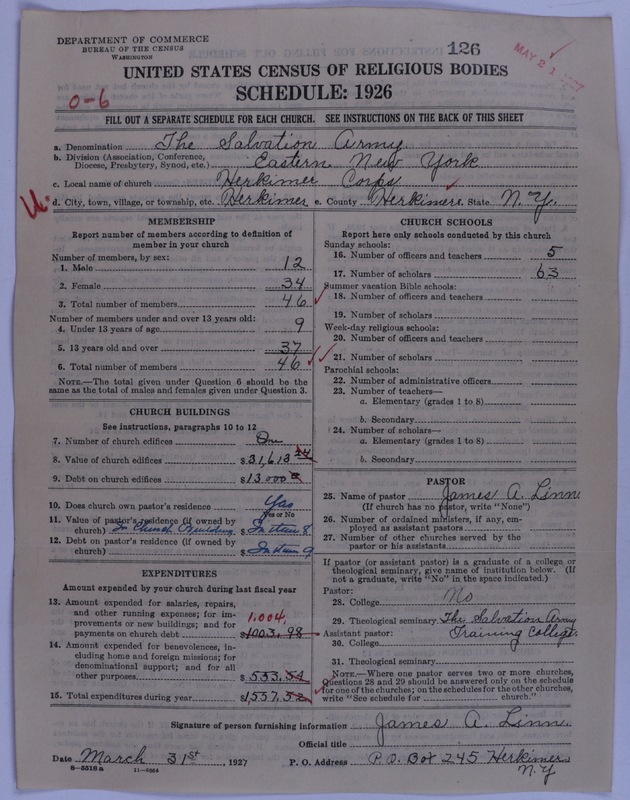 DEPARTMENT OF COMMERCE
BUREAU OF THE CENSUS
WASHINGTON
126
MAY 21
UNITED STATES CENSUS OF RELIGIOUS BODIES
SCHEDULE: 1926
0-6
FILL OUT A SEPARATE SCHEDULE FOR EACH CHURCH. SEE INSTRUCTIONS ON THE BACK OF THIS SHEET
a. Denomination The Salvation Army
b. Division (Association, Conference, Diocese, Presbytery, Synod, etc.) Eastern New York
c. Local name of church Herkimer Corps
d. City, town, village, or township, etc. Herkimer e. County Herkimer State N.Y.
MEMBERSHIP
Report number of members according to definition of
member in your church
Number of members, by sex:
1. Male 12
2. Female 34
3. Total number of members 46
Number of members under and over 13 years old:
4. Under 13 years of age 9
5. 13 years old and over 37
6. Total number of members 46
NOTE.—The total given under Question 6 should be
same as the total of males and females given under Question 3.
CHURCH BUILDINGS
See instructions, paragraphs 10 to 12
7. Number of church edifices One
8. Value of church edifices $31,613 24
9. Debt on church edifices $13.000
10. Does church own pastor's residence Yes
Yes or No
11. Value of pastor's residence (if owned by
church) In Church Building $ In item 8
12. Debt on pastor's residence (if owned by
church) $ In item 9
EXPENDITURES
Amount expended by your church during last fiscal year
13. Amount expended for salaries, repairs,
and other running expenses; for im-
provements or new buildings; and for 1,004.
payments on church debt $1003.98
14. Amount expended for benevolences, in-
cluding home and foreign missions; for
denominational support; and for all
other purposes $553.54
15. Total expenditures during year $1,557.52
CHURCH SCHOOLS
Report here only schools conducted by this church
Sunday schools:
16. Number of officers and teachers 5
17. Number of scholars 63
Summer vacation Bible schools:
18. Number of officers and teachers
19. Number of scholars
Week-day religious schools:
20. Number of officers and teachers
21. Number of scholars
Parochial schools:
22. Number of administrative officers
23. Number of teachers—
a. Elementary (grades 1 to 8)
b. Secondary
24. Number of scholars—
a. Elementary (grades 1 to 8)
b. Secondary
PASTOR
25. Name of pastor James A. Linn
(If church has no pastor, write "None")
26. Number of ordained ministers, if any, em-
ployed as assistant pastors
27. Number of other churches served by the
pastor or his assistants
If pastor (or assistant pastor) is a graduate of a college or
theological seminary, give name of institution below. (If
not a graduate, write "No" in the space indicated.)
Pastor:
28. College No
29. Theological seminary The Salvation Army
Assistant pastor: Training College.
30. College
31. Theological seminary
NOTE.—Where one pastor serves two or more churches,
Questions 28 and 29 should be answered only on the schedule
for one of the churches; on the schedules for the other churches,
write "See schedule for church."
Signature of person furnishing information James A. Linn.
Official title
Date March 31st, 1927 P. O. Address P.O. Box 245 Herkimer
N.Y
8-5518 a 11-6664